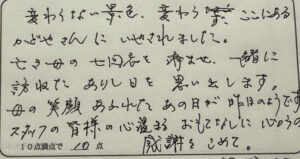 変わらない景色、変わらずここにある
かどやさんに いやされました。
亡き母の七回忌を済ませ、一緒に
訪れた ありし日を 思い出します。
母の笑顔 あふれた あの日が 昨日のようです
スタッフの皆様の心温まる おもてなしに 心からの
感謝をこめて。
10点満点で 10 点